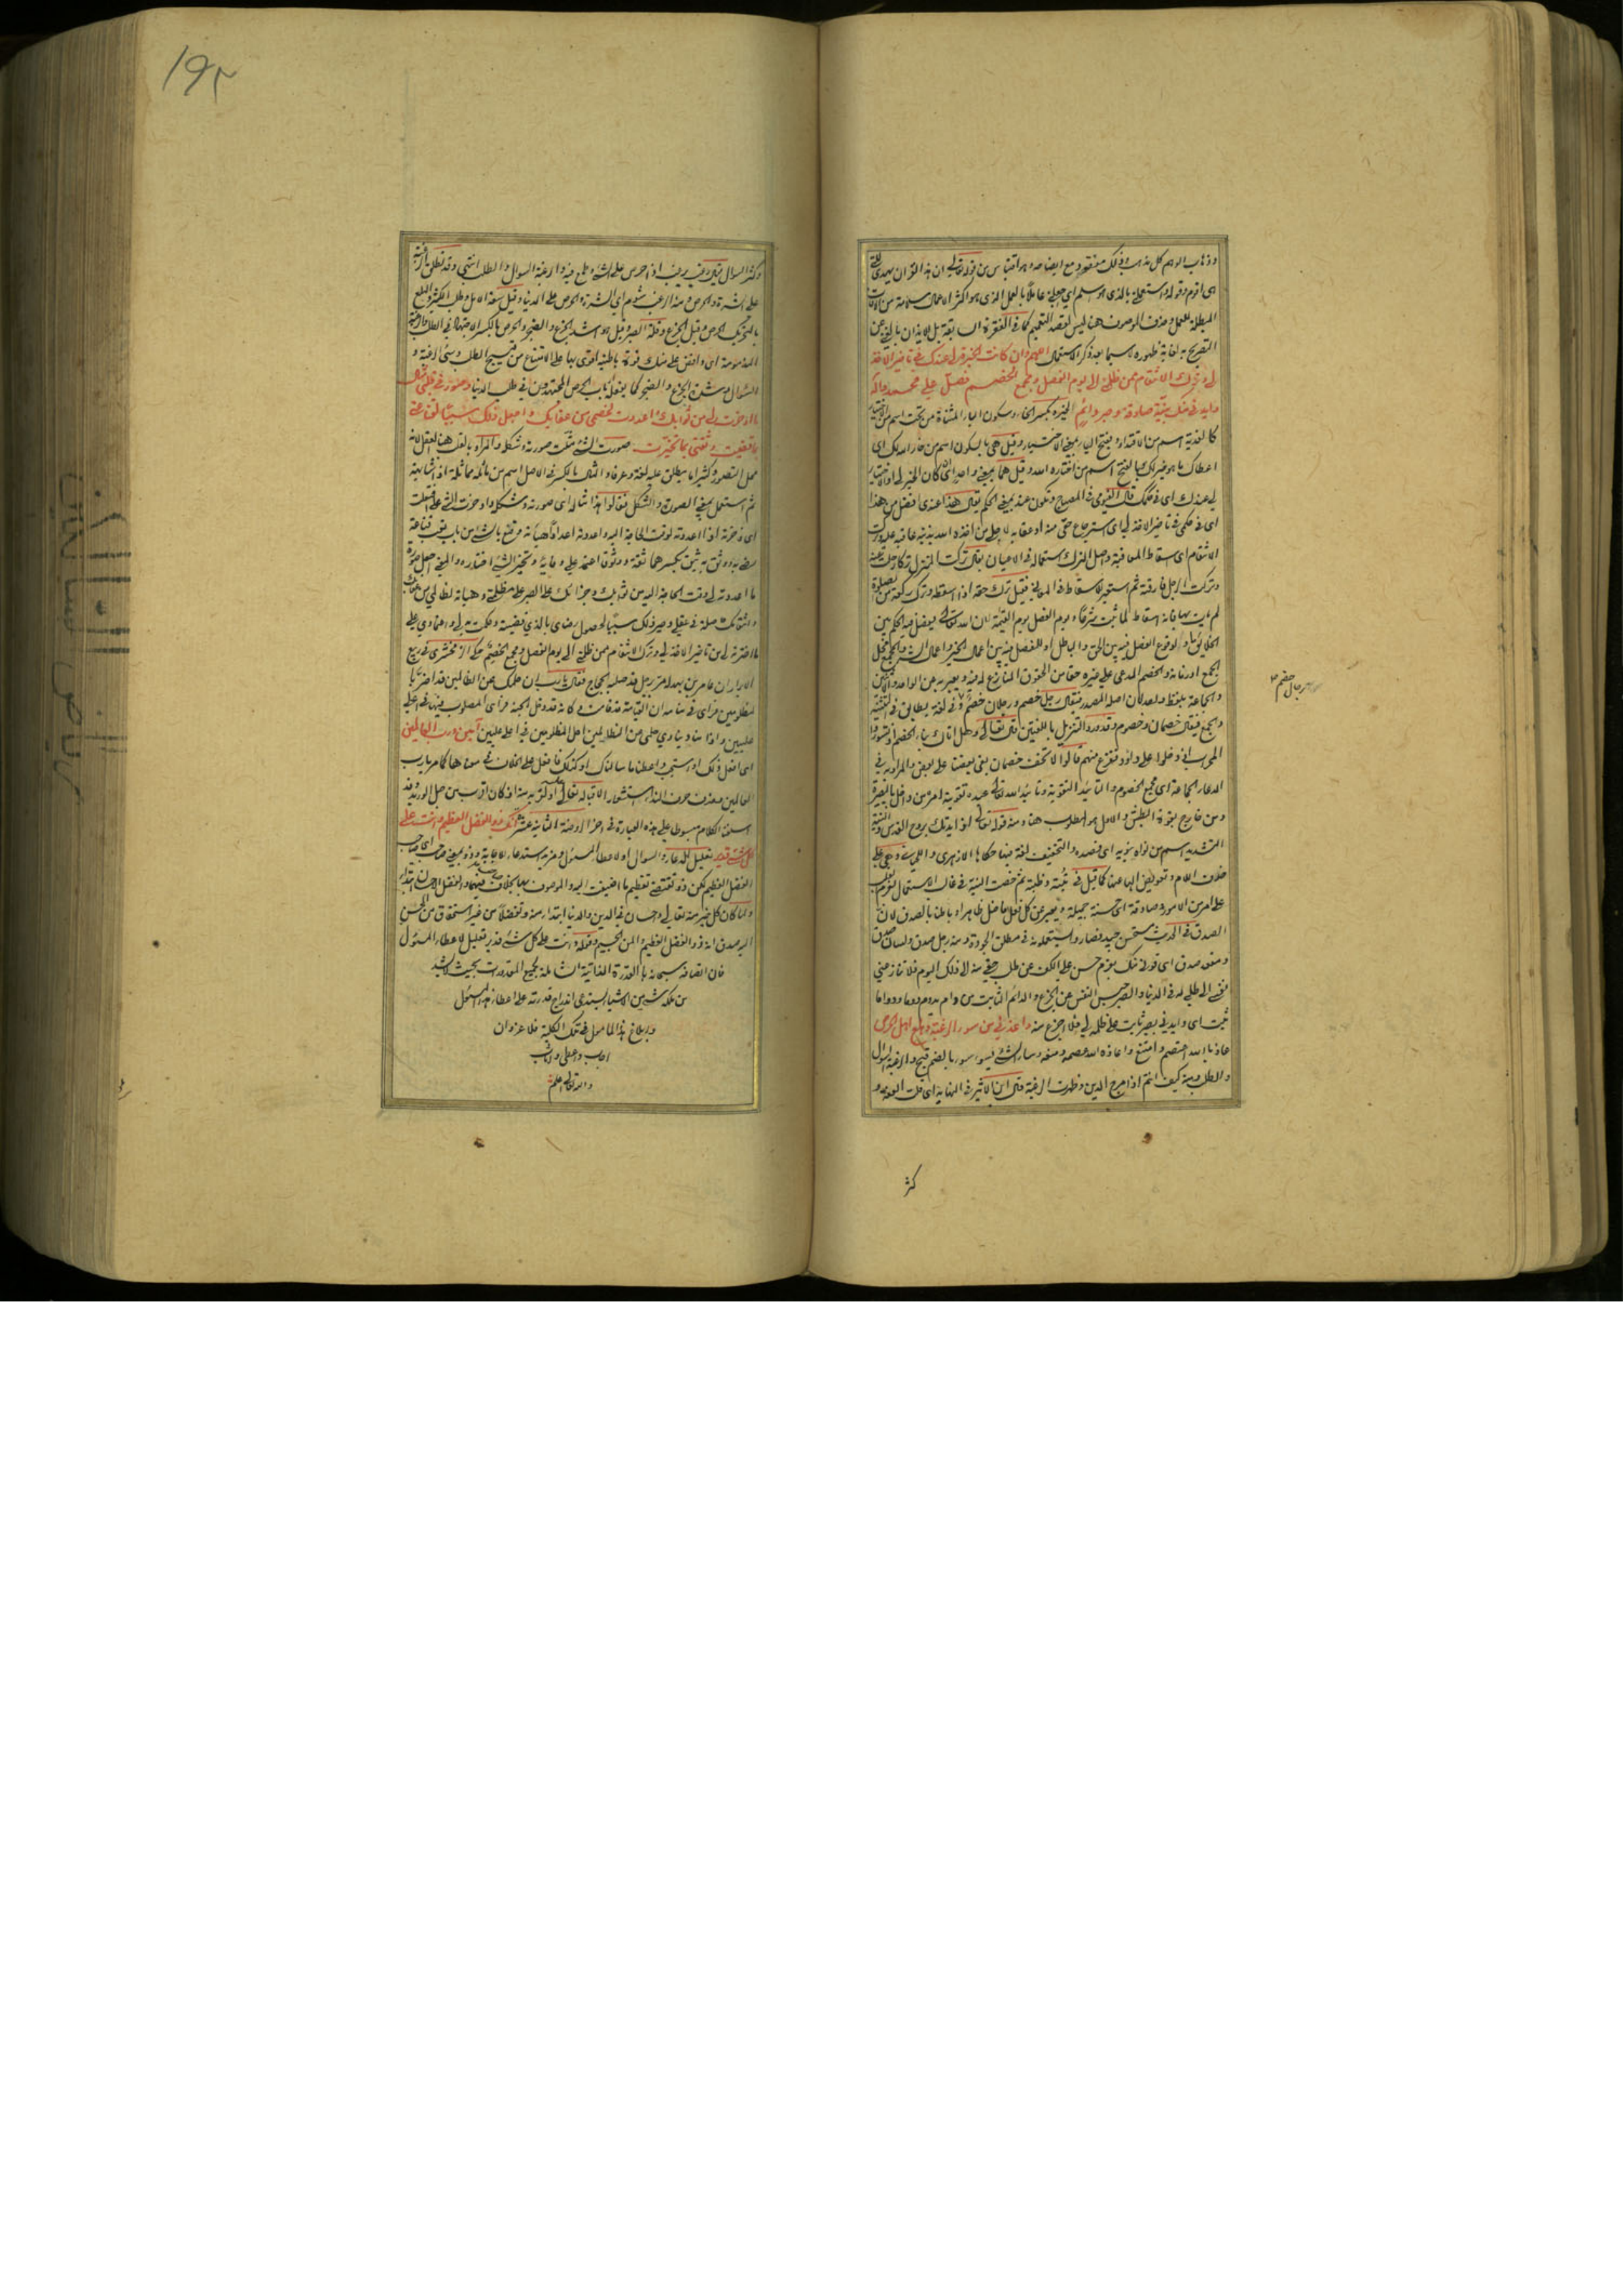 وذهاب الوهم كل مذهب وذلك مفقود مع ايضاحه وهو اقتباس من قوله تعالى ان هذا القرآن يهدي للتي
هي اقوم وقوله واستعملني بالذي هو اسلم اي اجعلني عاملا بالعمل الذي هو اكثر الاعمال سلامة من الآفات
المبطلة للعمل وحذف الموصوف هنا ليس لقصد التعميم كما في الفقرة السابقة بل للايذان بالغنى عن
التصريح به لغاية ظهوره لا سيما بعد ذكر الاستعمال اللهم وان كانت الخيرة لي عندك في تأخير الاخذ
لي وترك الانتقام ممن ظلمني الى يوم الفصل ومجمع الخصم فصل على محمد وآله
وايدني منك بنية صادقة وصبر دائم الخيرة بكسر الخاء وسكون الياء المثناة من تحت اسم من الاختيار
كالفدية اسم من الافتداء وبفتح الياء بمعنى الاختيار وقيل هي بالسكون اسم من خار الله لك اي
اعطاك ما هو خير لك وبالفتح اسم من اختاره الله وقيل هما بمعنى واحد اي ان كان الخير لي او الاختيار
لي عندك اي في حكمك قال الفيومي في المصباح وتكون عند بمعنى الحكم يقال هذا عندي افضل من هذا
اي في حكمي في تأخير الاخذ لي اي استرجاع حقي منه او عقابه لاجلي من اخذه الله بذنبه عاقبه عليه وترك
الانتقام اي اسقاط المعاقبة واصل الترك استعماله في الاعيان يقال تركت المنزل تركا رحلت عنه
وتركت الرجل فارقته ثم استعير للاسقاط في المعاني فقيل ترك حقه اذا اسقطه وترك ركعة من الصلوة
لم يأت بها فانه اسقاط لما ثبت شرعا ويوم الفصل يوم القيمة لان الله تعالى يفصل فيه الحكم بين
الخلائق او لوقوع الفصل فيه بين الحق والباطل او للفصل فيه بين اعمال الخير واعمال الشر والمجمع محل
الجمع او زمانه والخصم المدعي على غيره حقا من الحقوق المنازع له فيه ويعبر به عن الواحد والاثنين
والجماعة بلفظ واحد لان اصله المصدر فيقال رجل خصم ورجلان خصم وفي لغة يطابق في التثنية
والجمع فيقال خصمان وخصوم وقد ورد التنزيل باللغتين قال تعالى وهل اتاك نبأ الخصم اذ تسوروا
المحراب اذ دخلوا على داود ففزع منهم قالوا لا تخف خصمان بغى بعضنا على بعض والمراد به في
الدعاء الجماعة اي مجمع الخصوم والتأييد التقوية وتأييد الله تعالى عبده تقوية امره من داخل بالبصيرة
ومن خارج بقوة البطش والاول هو المطلوب هنا ومنه قوله تعالى اذ ايدتك بروح القدس والنية
بالتشديد اسم من نواه ينويه اي قصده والتخفيف لغة فيها حكاها الازهري
حذف اللام وتعويض الهاء عنها كما قيل في ثبة وظبة ثم خصت النية في غالب الاستعمال بعزم القلب
على امر من الامور وصادقة اي حسنة جميلة ويعبر عن كل فعل فاضل ظاهرا وباطنا بالصدق لان
الصدق في الحديث مستحسن جيد فصاروا يستعملونه في مطلق الجودة ومنه رجل صدق ولسان صدق
ومقعد صدق اي قوني منك بعزم حسن على الكف عن طلب حقي منه الى ذلك اليوم فلا تنازعني
نفسي الى طلبي له في الدنيا والصبر حبس النفس عن الجزع والدائم الثابت من دام يدوم دوما ودواما
ثبت اي وايدني بصبر ثابت على ظلمه لي فلا اجزع منه واعذني من سوء الرغبة وهلع اهل الحرص
عاذ بالله اعتصم وامتنع واعاذه الله عصمه ومنعه وساء الشيء يسوء سوءا بالضم قبح والرغبة السؤال
والطلب ومنه كيف انتم اذا مرج الدين وظهرت الرغبة قال ابن الاثير في النهاية اي قلت العفة و
رجال خصم
كثر
۱۹۲
وكثر السؤال يقال رغب يرغب اذا حرص على الشيء وطمع فيه والرغبة السؤال والطلب انتهى وقد تطلق الرغبة
على الشره والحرص ومنه الرغب شوم اي الشره والحرص على الدنيا وقيل سعة الامل وطلب الكثير والهلع
بالتحريك الحرص وقيل الجزع وقلة الصبر وقيل هو اشد الجزع والضجر والحرص بالكسر الاجتهاد في الطلب والرغبة
المذمومة اي وافض علي منك قوة باطنية اقوى بها على الامتناع من قبيح الطلب وسيئ الرغبة و
السؤال وشدة الجزع والضجر كما يفعله ارباب الحرص المجتهدون في طلب الدنيا وصور في قلبي مثال
ما ادخرت لي من ثوابك واعددت لخصمي من عقابك واجعل ذلك سببا لقناعتي
بما قضيت وثقتي بما تخيرت صورت الشيء مثلت صورته وشكله والمراد بالقلب هنا العقل لانه
محل التصور وكثيرا ما يطلق عليه لغة وعرفا والمثال بالكسر في الاصل اسم من ماثله مماثلة اذا شابهه
ثم استعمل بمعنى الصورة والشكل فقالوا هذا مثاله اي صورته وشكله وادخرت الشيء على افتعلت
اي ذخرته اذا اعددته لوقت الحاجة اليه واعددته اعدادا هيأته وقنع بالشيء من باب تعب قناعة
رضي به ووثق به يثق بكسرهما ثقة ووثوقا اعتمد على وفائه وتخير الشيء اختاره والمعنى اجعل صورة
ما اعددته لي وقت الحاجة اليه من ثوابك وجزائك على الصبر على مظلمتي وهيأته لظالمي من عقابك
وانتقامك حاصلة في عقلي وصير ذلك سببا لحصول رضاي بالذي قضيته وحكمت به لي واعتمادي على
ما اخترته لي من تأخير الاخذ لي وترك الانتقام ممن ظلمني الى يوم الفصل ومجمع الخصم حكى الزمخشري في ربيع
الابرار ان عامر بن بهدلة مر برجل قد صلبه الحجاج فقال يا رب ان حلمك عن الظالمين قد اضر با
لمظلومين فرأى في منامه ان القيامة قد قامت وكأنه قد دخل الجنة فرأى المصلوب فيها في اعلى
عليين واذا مناد ينادي حلمي عن الظالمين احل المظلومين في اعلى عليين آمين رب العالمين
اي افعل ذلك او استجب واعطنا ما سالناك او كذلك فافعل على الخلاف في معناها كما مر يا رب
العالمين وحذف حرف النداء استشعارا لاقباله تعالى او لقربه منه اذ كان اقرب من حبل الوريد وقد
اسلفنا الكلام مبسوطا على هذه العبارة في اخر الروضة الثانية عشر انك ذو الفضل العظيم وانت على
كل شيء قدير تعليل للدعاء والسؤال او لاعطاء المسئول ومزيد استدعاء للاجابة وذو بمعنى صاحب اي صاحب
الفضل العظيم لكن ذو تقتضي تعظيم ما اضيف اليه والموصوف بها بخلاف صاحب فيهما والفضل احسان ابتداء
ولما كان كل خير منه تعالى واحسان في الدين والدنيا ابتداء منه وتفضلا من غير استحقاق من المحسن
اليه صدق انه ذو الفضل العظيم والمن الجسيم وقوله وانت على كل شيء قدير تعليل لاعطاء المسئول
فان اتصافه سبحانه بالقدرة الذاتية الشاملة لجميع المقدورات بحيث لا يشذ
من ملكه شيء من الاشياء يستدعي اندراج قدرته على اعطاء هذا المسئول
وابلاغ هذا المأمول في تلك الكلية فلا عز وان
اجاب واعطى واثاب
والله تعالى اعلم
رياض السالكين